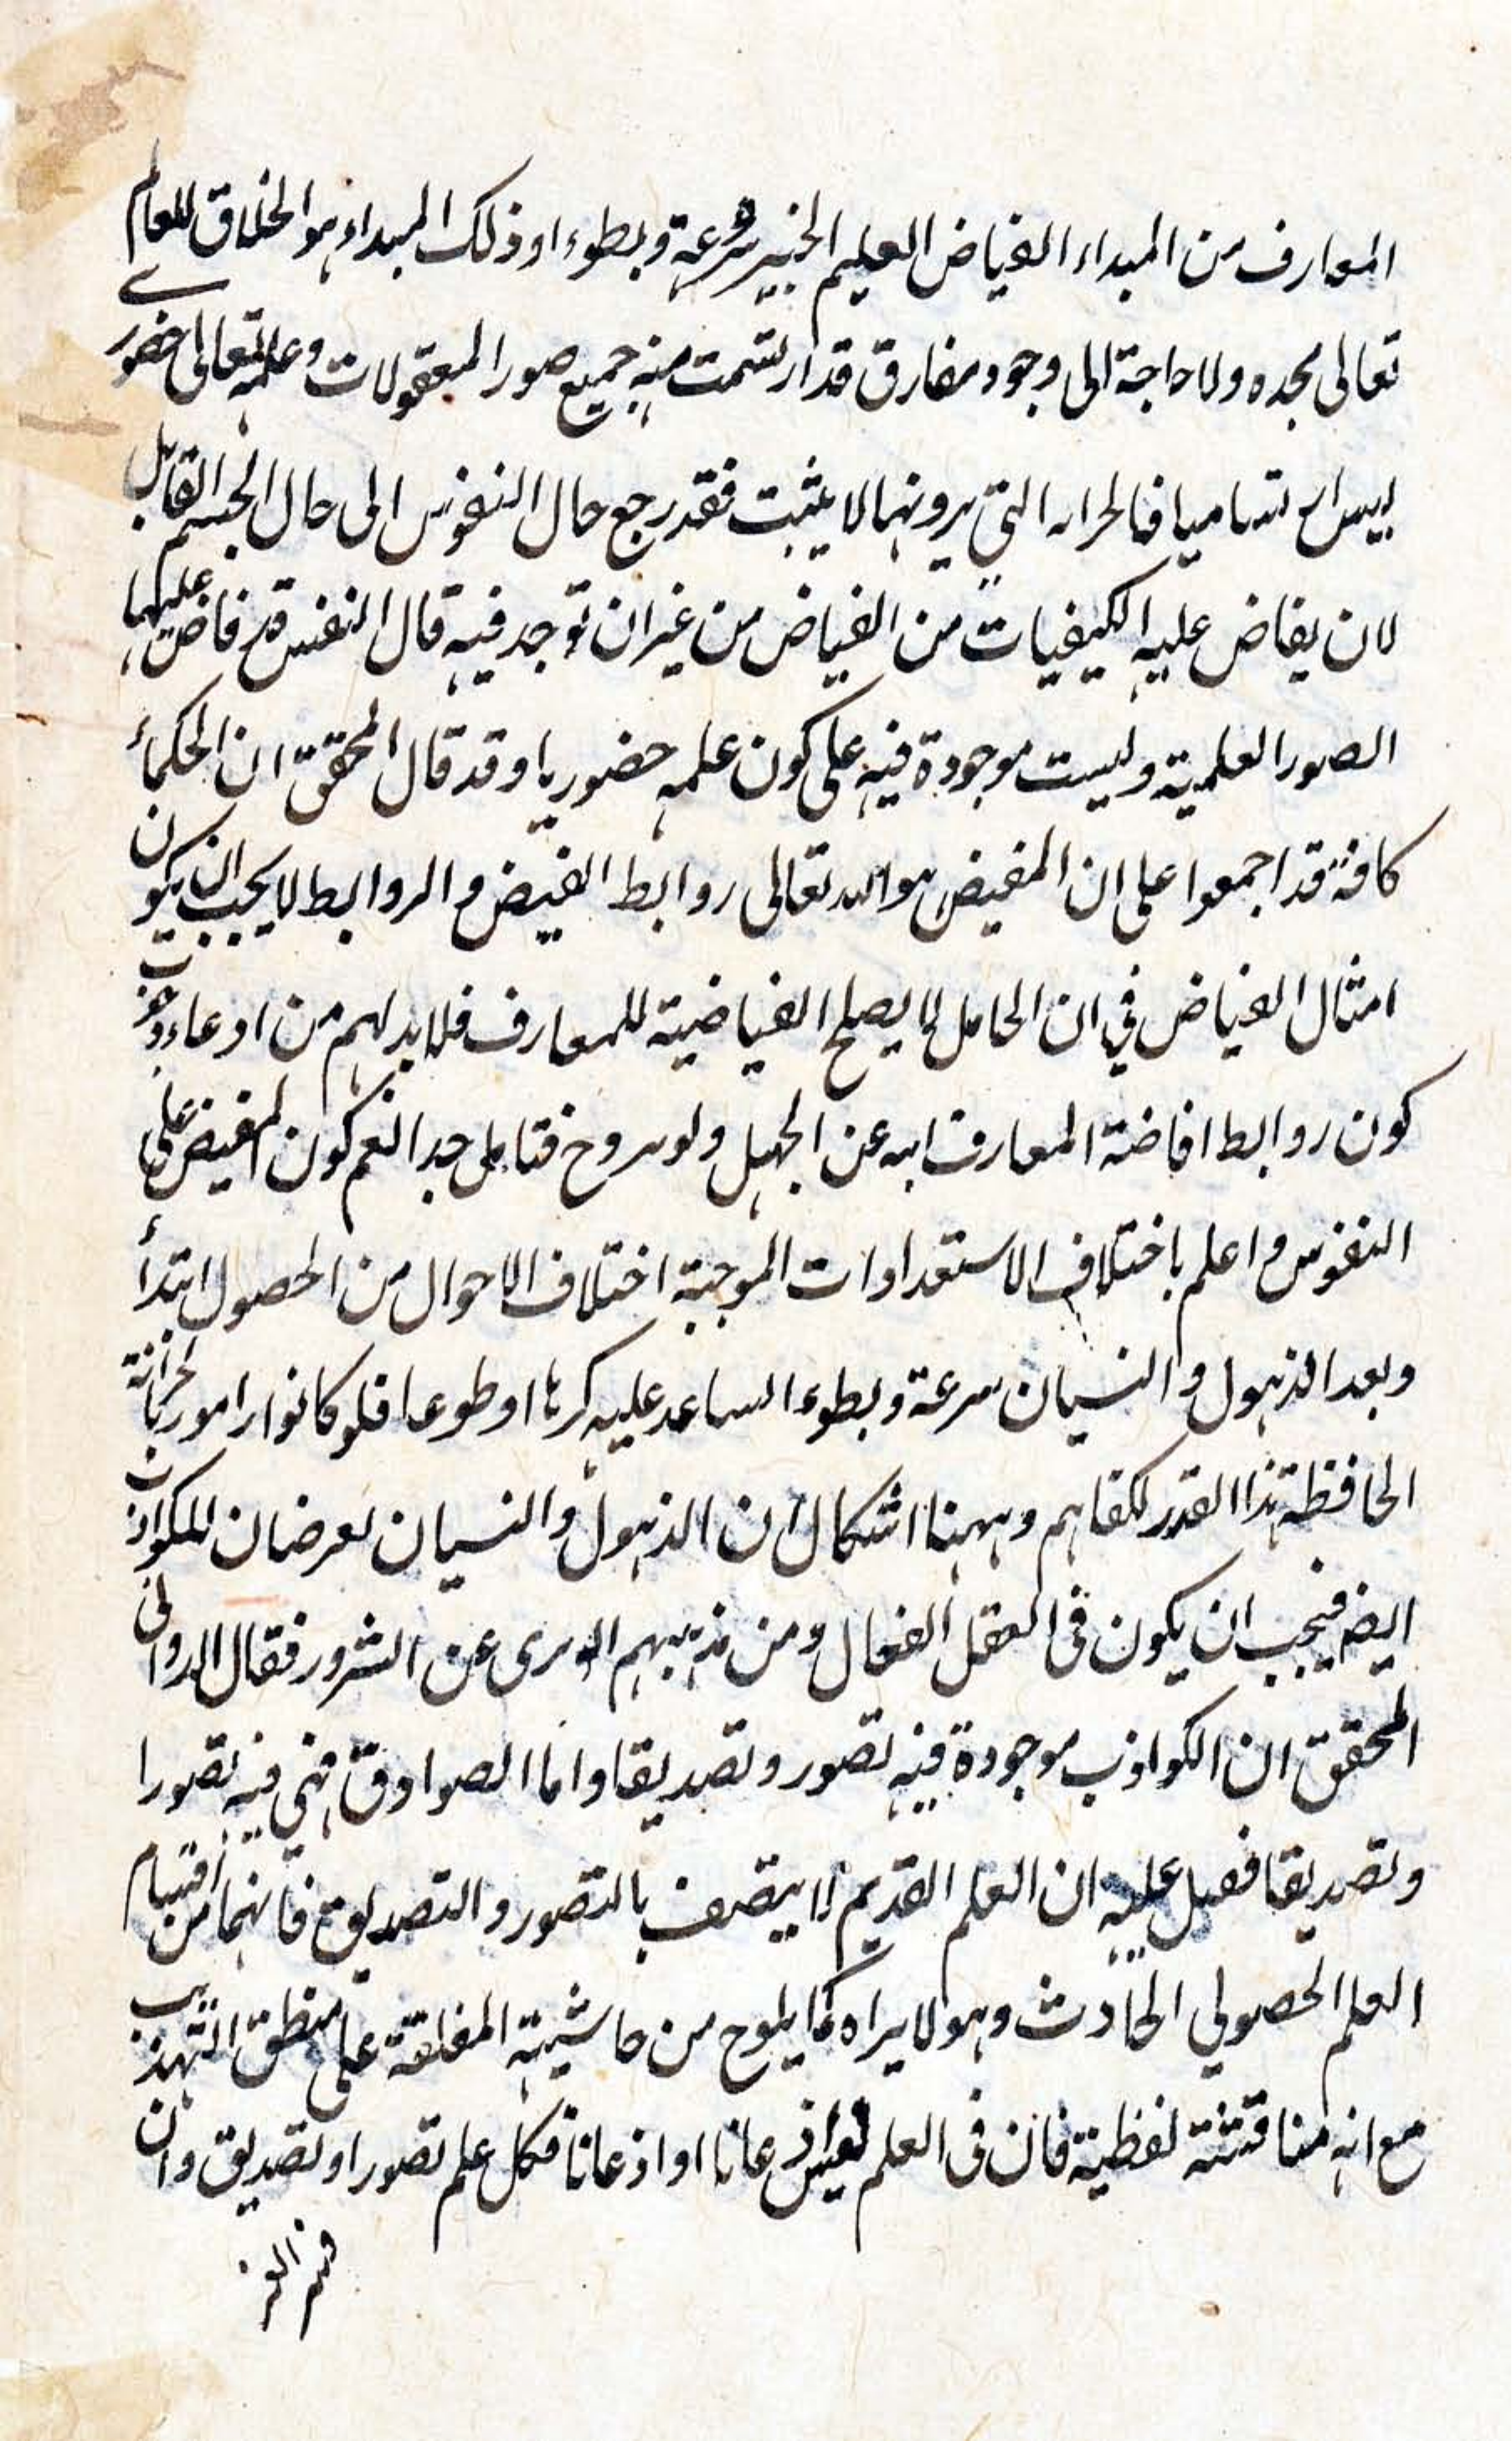 المعارف من المبداء الفياض العليم الخبير سرعة وبطوء اوذلك المبداء هو الخلاق للعالم
تعالى مجده ولا حاجة الى وجود مفارق قد ارتسمت فيه جميع صور المعقولات وعلمه تعالى حضوري
ليس التي يرونها لا يثبت فقد رجع حال النفوس الى حال الجسم القابل
لان يفاض عليه الكيفيات من الفياض من غير ان توجد فيه قال النفس قد فاض عليها
الصور العلمية وليست موجودة فيه على كون علمه حضوريا وقد قال المحقق ان الحكماء
كافة قد اجمعوا على ان المفيض هو الله تعالى روابط الفيض والروابط لا يجب ان يكون
امثال الفياض في ان الحامل لا يصلح الفياضية للمعارف فلا بد لهم من ادعاء وجوب
كون روابط افاضة المعارف ابيه عن الجهل ولو فتامل جدا نعم كون المفيض على
النفوس واعلم باختلاف الاستعدادات الموجبة اختلاف الاحوال من الحصول ابتداً
وبعد الذهول والنسيان سرعة وبطوء الساعد عليه كرها او طوعا فلو كانوا راموا بالخزانة
الحافظة هذا القدر لكفاهم وههنا اشكال ان الذهول والنسيان لعرضان للكواذب
ايضا فيجب ان يكون فى العقل الفعال ومن مذهبهم انه برى عن الشرور فقال الدوانى
المحقق ان الكواذب موجودة فيه تصور وتصديقا واما الصوادق فهي فيه تصورا
وتصديقا فقيل عليه ان العلم القديم لا يتصف بالتصور والتصديق فانهما من اقسام
العلم الحصولي الحادث وهو لا يراه كما يلوح من حاشيته المغلقة على منطق التهذيب
مع انه مناقشة لفظية فان فى العلم اما اذعانا فكل علم تصور او تصديق وان